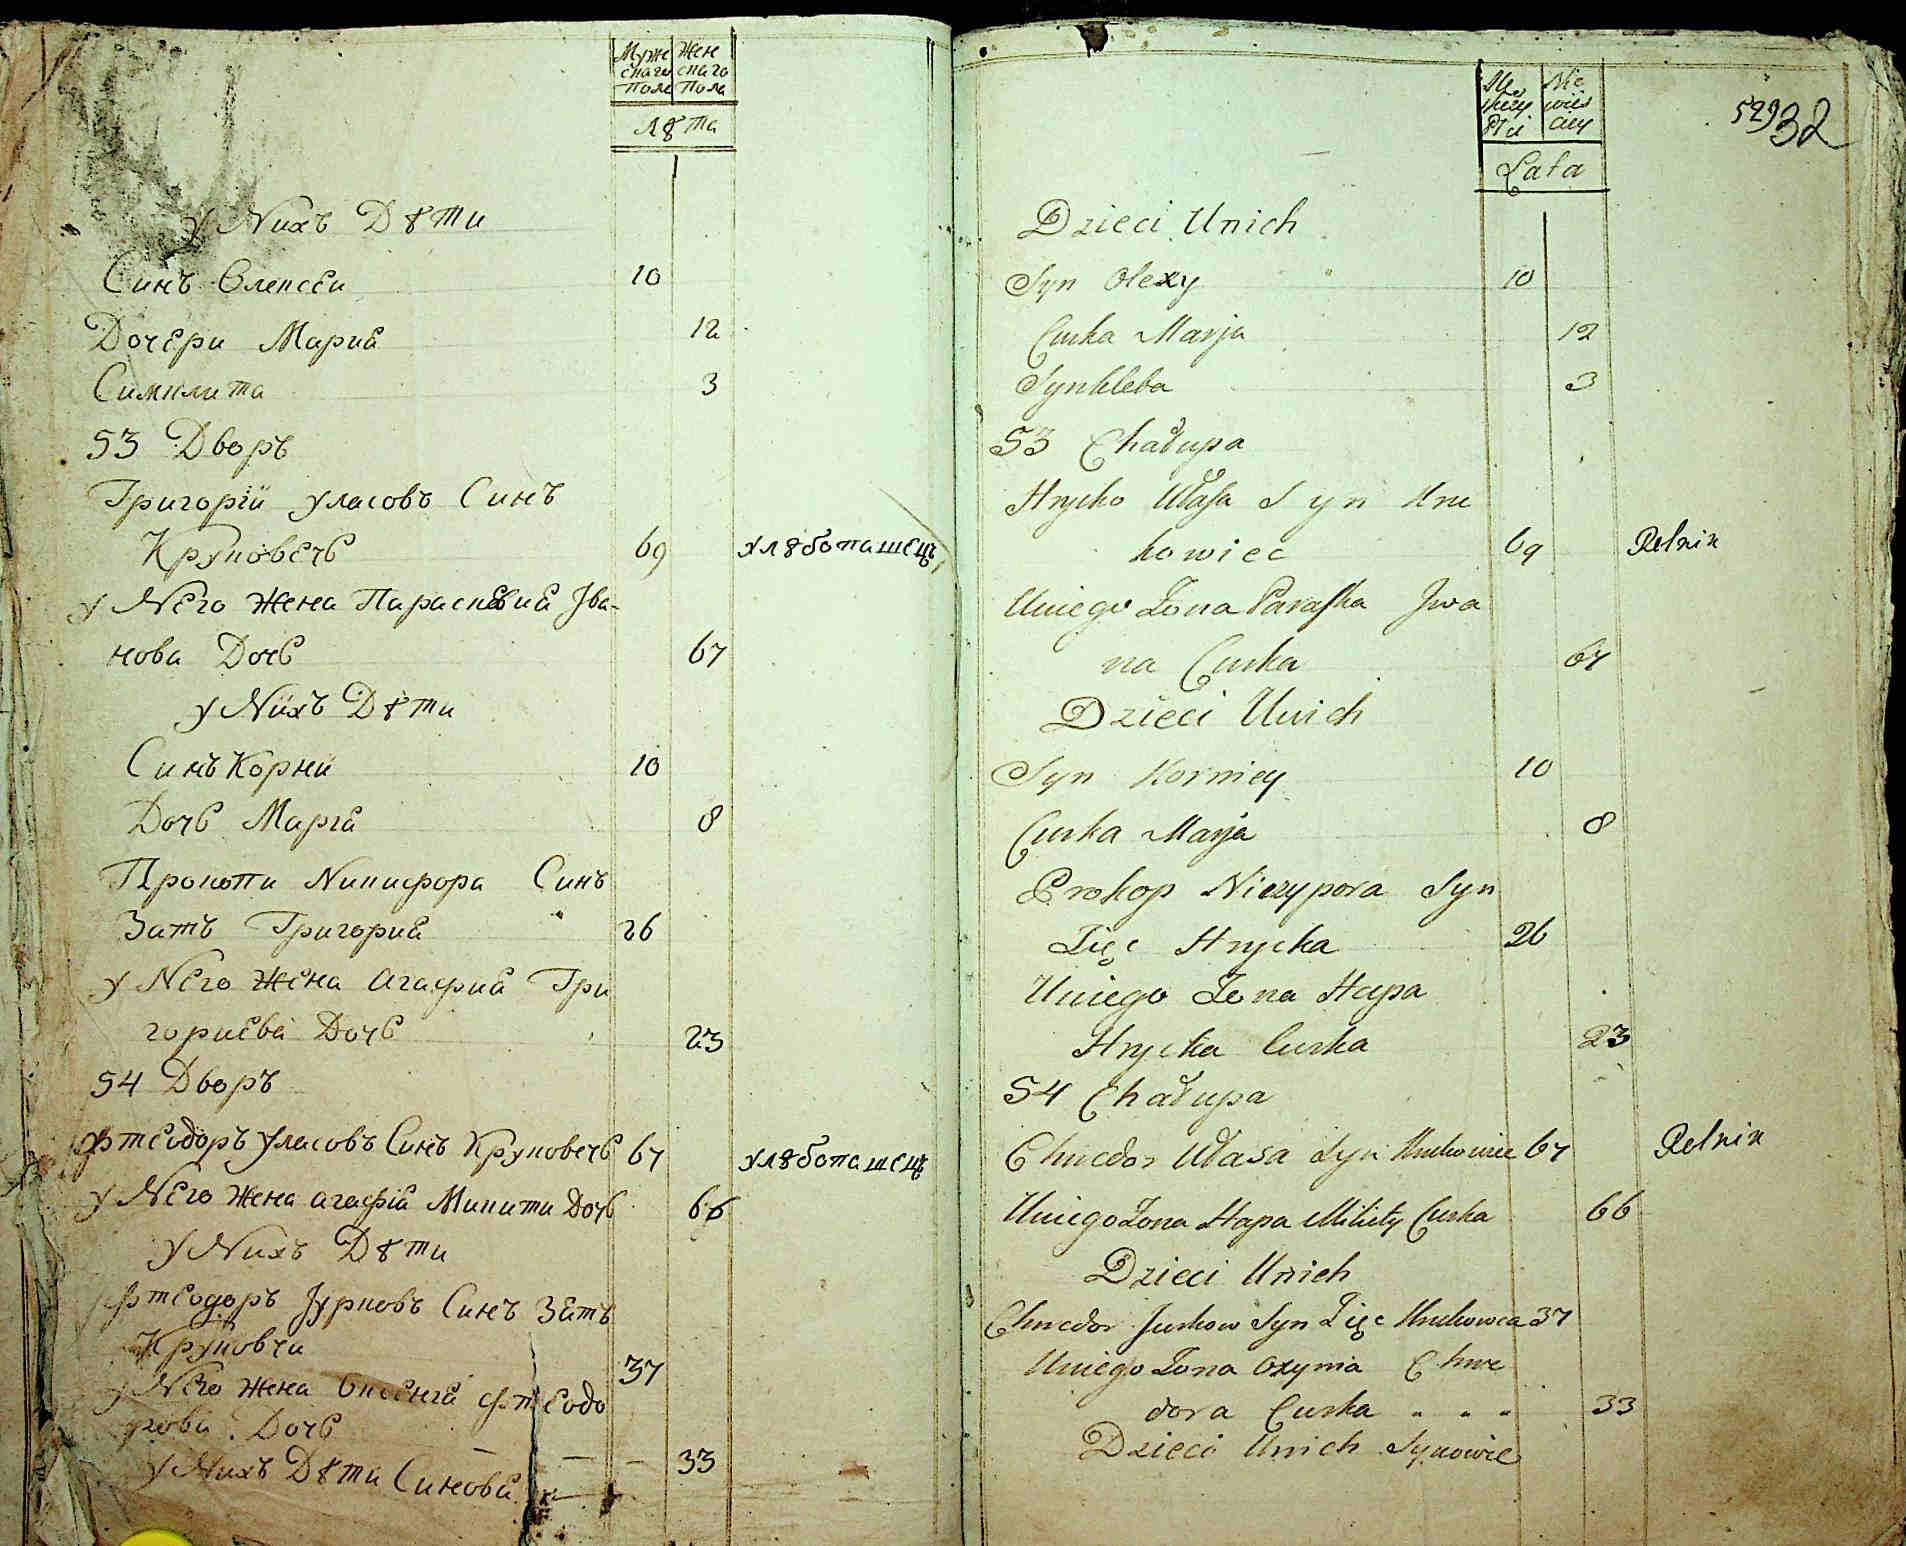 Муже Жен
скаго скаго
Пола Пола
Лѣта
У Нихъ Дѣти
Синъ Олексѣи 10
Дочери Мария 12
Симклита 3
53 Дворъ
Григорій Уласовъ Синъ
Круковечь 69 Хлѣбопашецъ
У Него жена Параскѣвия Ива-
нова Дочь 67
У Нихъ Дѣти
Синъ Корни 10
Дочь Марія 8
Прокопи Никифора Синъ
Зать Григория 26
У Него жена Агафия Гри
гориева Дочь 23
54 Дворъ
Фтеодоръ Уласовъ Синъ Круковечь 67 Хлѣбопашецъ
У Него жена Агафія Микити Дочь 66
У Нихъ Дѣти
Фтеодоръ Юрковъ Синъ Зать
Круковча 37
У Него жена Оксенія Фтеодо
рова Дочь
У Нихъ Дѣти Синова 33
Mę Nie
skiey wies
Płci ciey
Lata
529 32
Dzieci Unich
Syn Olexy 10
Curka Marja 12
Synkleta 3
53 Chałupa
Hrycko Ułasa Syn Kru
kowiec 69 Rolnik
Uniego Żona Paraska Jwa
na Curka 67
Dzieci Unich
Syn Korniey 10
Curka Marja 8
Prokop Niczypora Syn
Zięc Hrycka 26
Uniego Żona Hapa
Hrycka Curka 23
54 Chałupa
Chwedor Ułasa Syn Krukowiec 67 Rolnik
Uniego Żona Hapa Mikity Curka 66
Dzieci Unich
Chwedor Jurkow Syn Zięc Krukowca 37
Uniego Żona Oxynia Chwe
dora Curka 33
Dzieci Unich Synowie